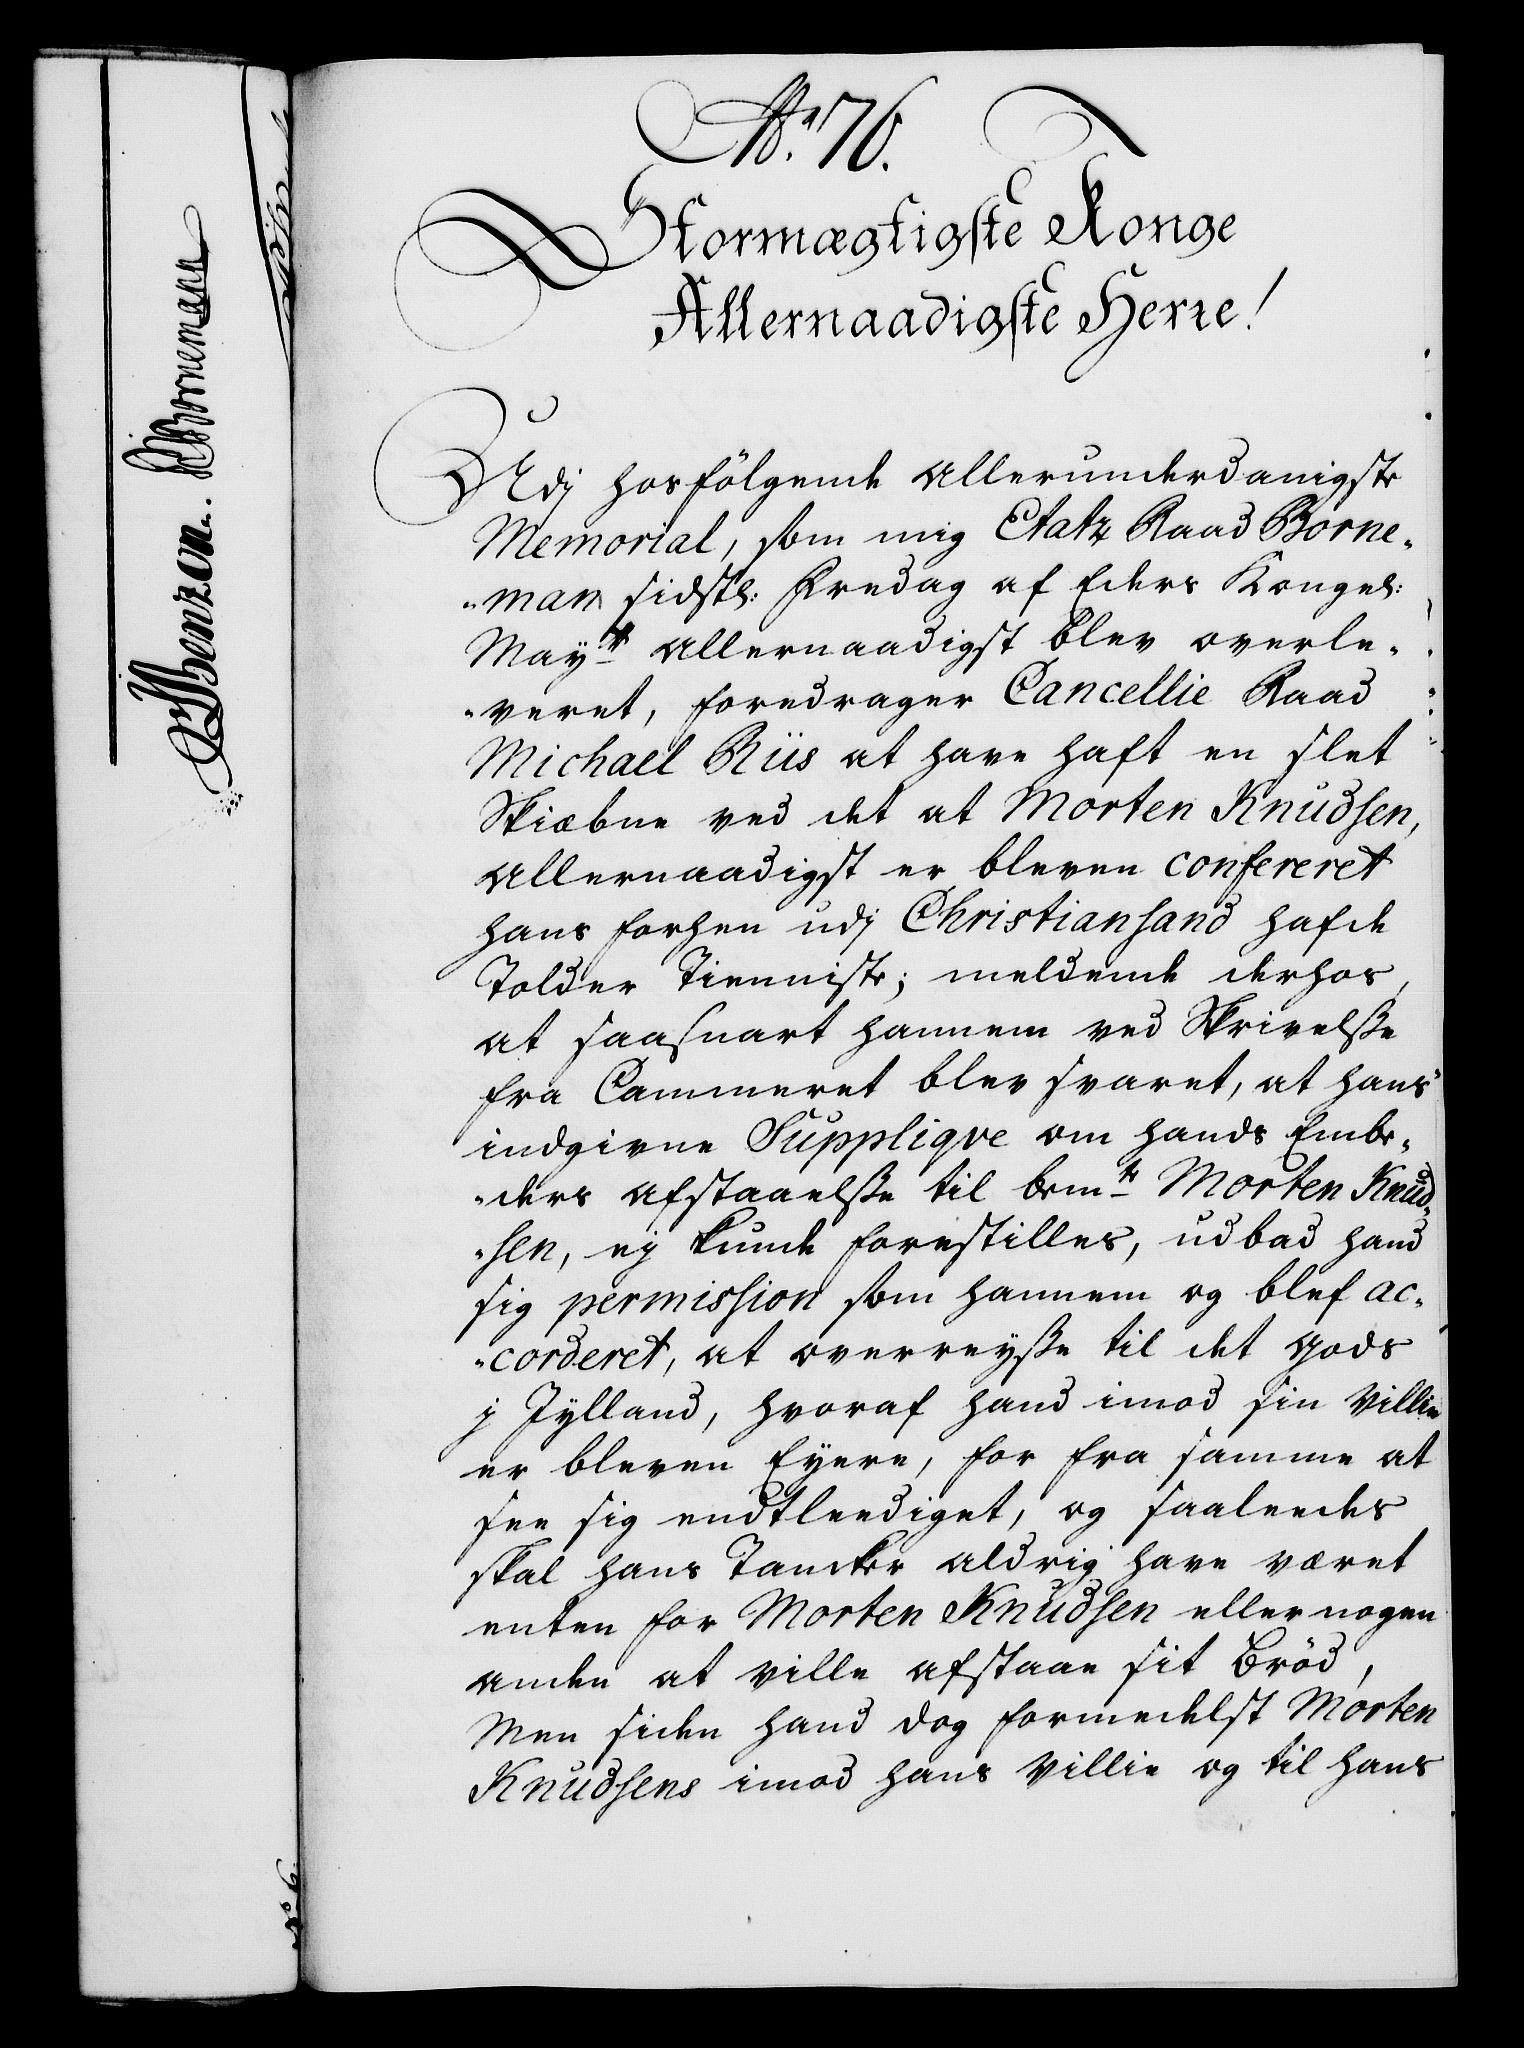 No. 76.
Stormægtigste Konge
Allernaadigste Herre!
Udj hosfölgende allerunderdanigste
Memorial, som mig Etatz Raad Borne„
„man sidstl: Fredag af Eders Kongel:
Mayt allernaadigst blev overle„
„veret, foredrager Cancellie Raad
Michael Riis at have haft en slet
Skiæbne ved det at Morten Knudsen,
allernaadigst er bleven confereret
hans forhen udj Christiansand hafde
Tolder Tienniste; meldende derhos,
at saasnart hannem ved Skrivelsse
fra Cammeret blev svaret, at hans
indgivne Supplique om hands Embe„
„ders afstaaelsse til bemte Morten Knud„
„sen, ej kunde forestilles, udbad hand
sig permission som hannem og blef ac„
„corderet, at overreysse til det gods
j Jylland, hvoraf hand imod sin Villie
er bleven Eyere, for fra samme at
see sig endtleediget, og saaleedes
skal hans Tancker aldrig have været
enten for Morten Knudsen eller nogen
anden at ville afstaae sit Bröd,
Men siden hand dog formedelst Morten
Knudsens imod hans Villie og til hans
Benzon. Bornemann